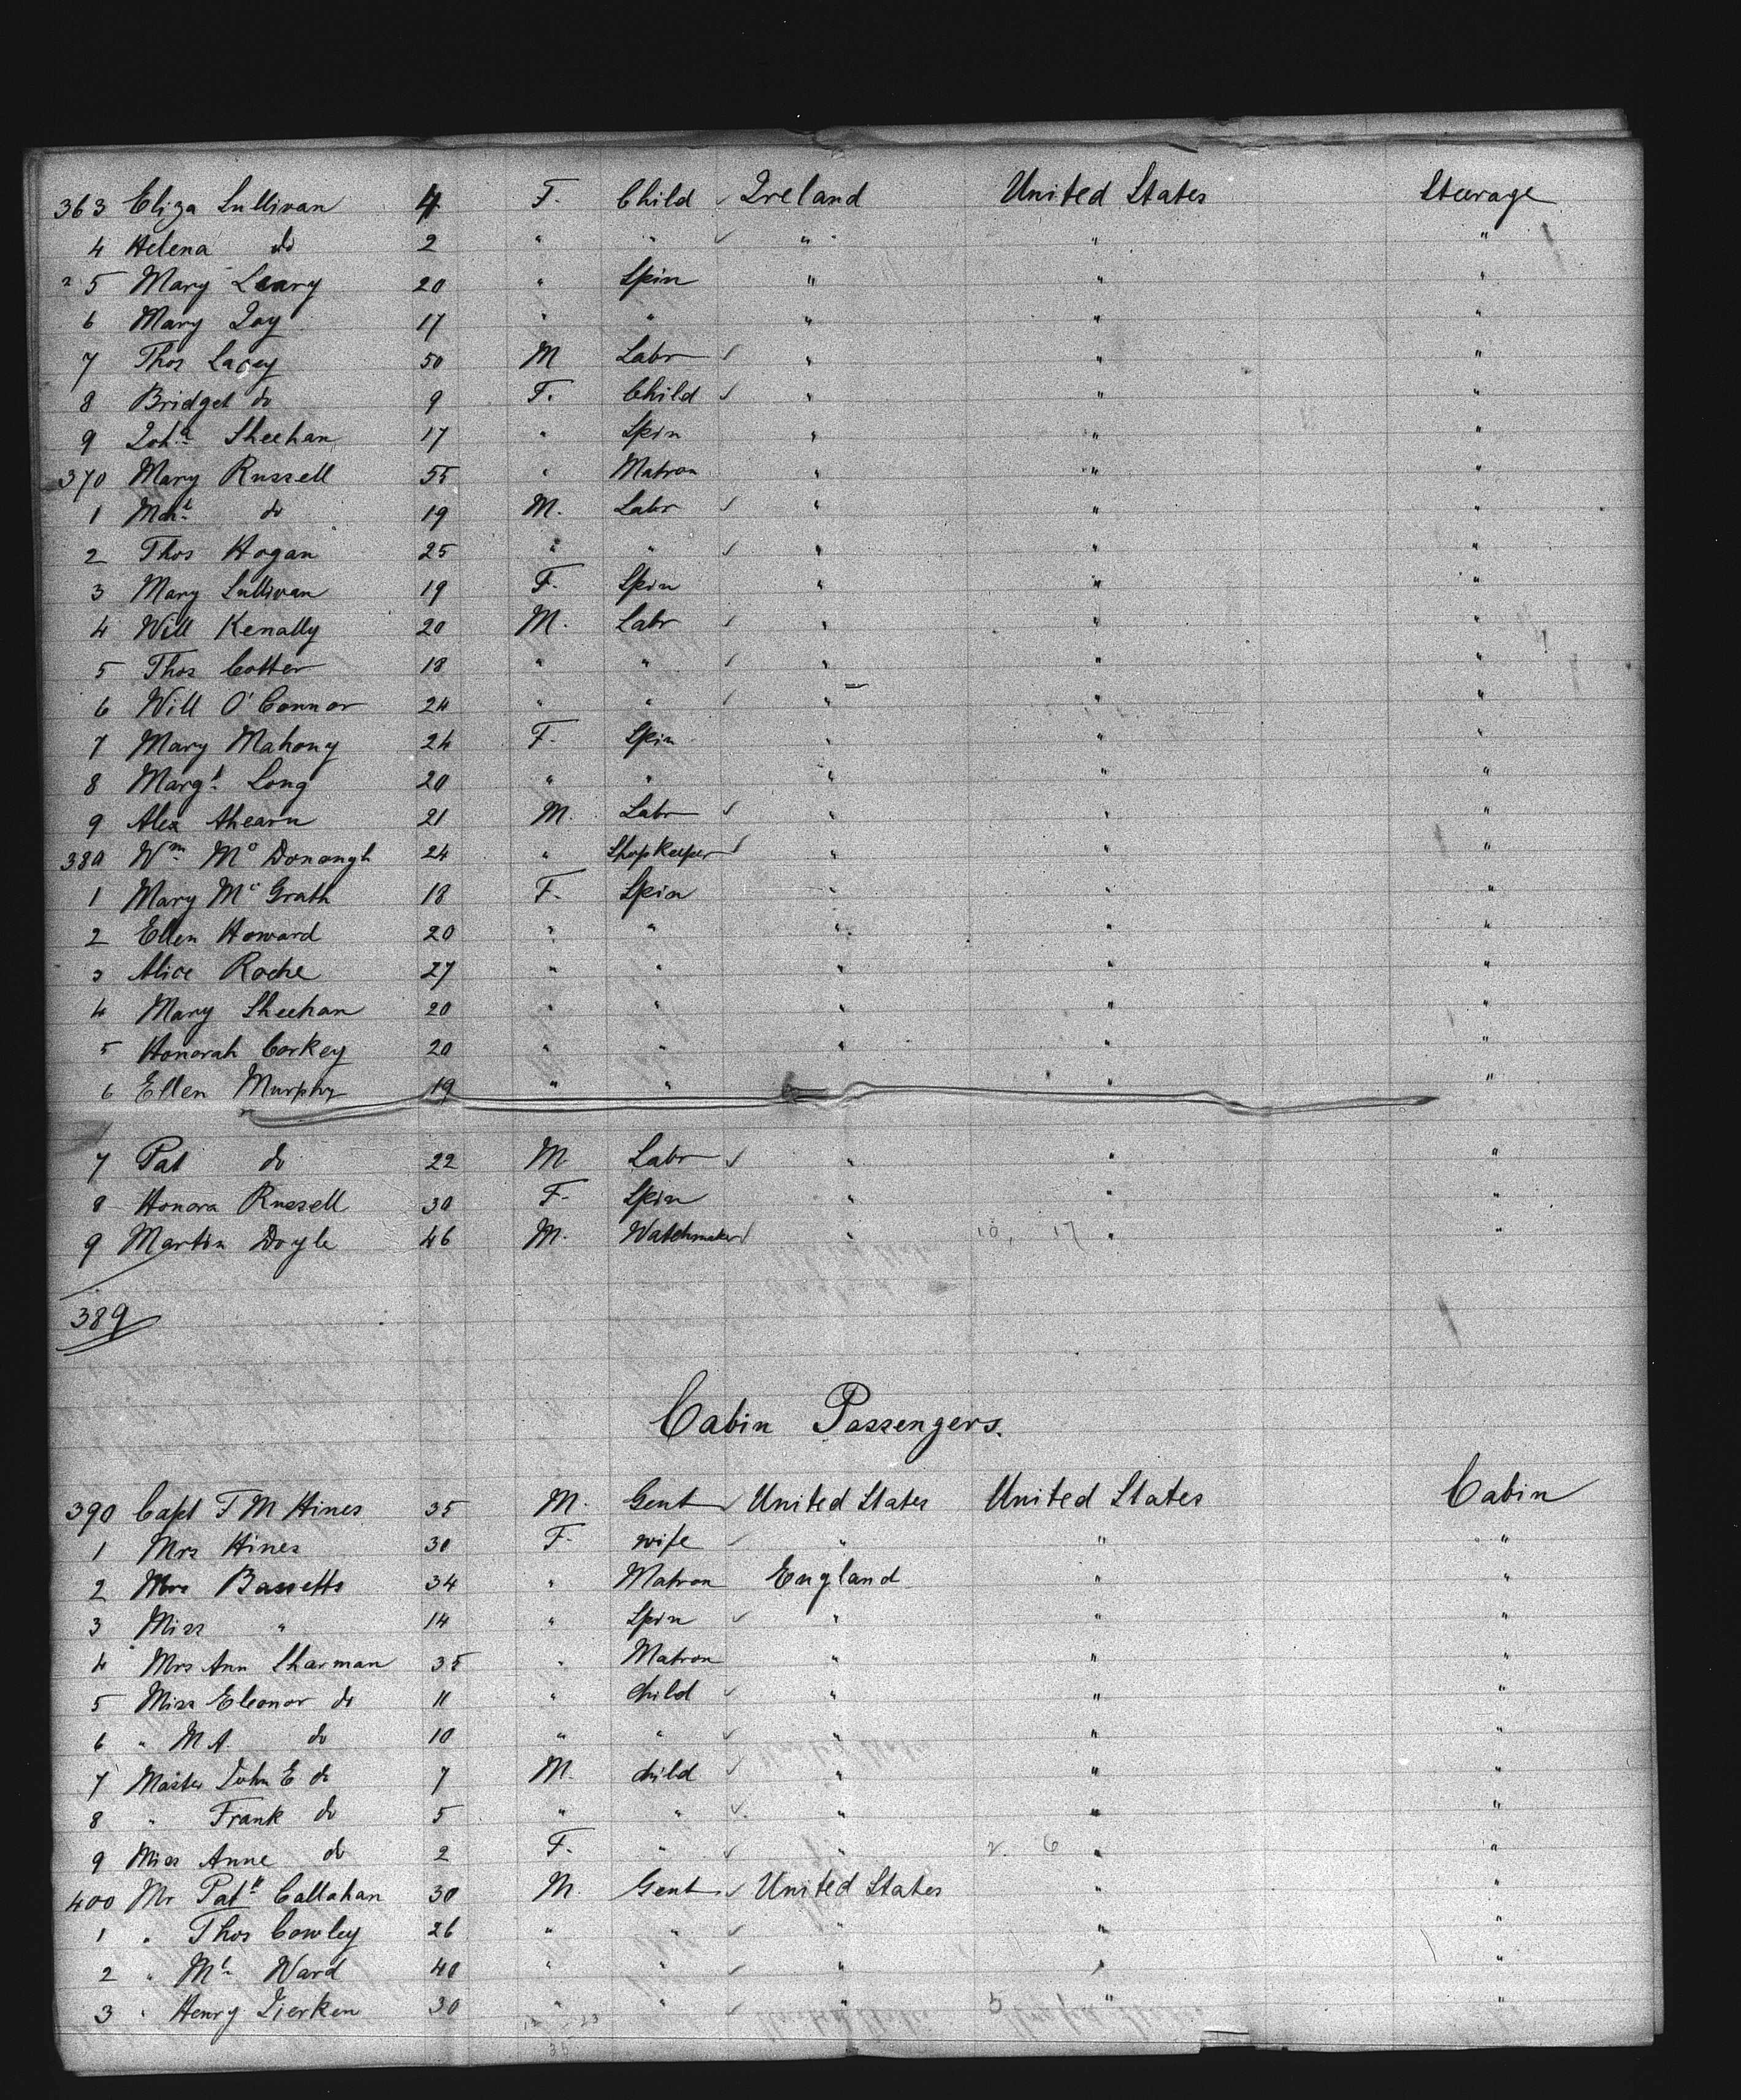 363 Eliza Sullivan 4 F. Child ✓ Ireland United States Steerage
4 Helena do 2 " " ✓ " " "
5 Mary Leary 20 " Spin " " "
6 Mary Joy 17 " " " " "
7 Thos Lacey 50 M Labr ✓ " " "
8 Bridget do 9 F. Child ✓ " " "
9 Joha Sheehan 17 " Spin " " "
370 Mary Russell 55 " Matron " " "
1 do 19 M. Labr ✓ " " "
2 Thos Hogan 25 " " ✓ " " "
3 Mary Sullivan 19 F. Spin " " "
4 Will Kenally 20 M. Labr ✓ " " "
5 Thos Cotter 18 " " ✓ " " "
6 Will O'Connor 24 " " ✓ " " "
7 Mary Mahony 24 F. Spin " " "
8 Margt Long 20 " " " " "
9 Alex Ahearn 21 M. Labr ✓ " " "
380 Wm Mc Donough 24 " Shopkeeper ✓ " " "
1 Mary Mc Grath 18 F. Spin " " "
2 Ellen Howard 20 " " " " "
3 Alice Roche 27 " " " " "
4 Mary Sheehan 20 " " " " "
5 Honorah Corkey 20 " " " " "
6 Ellen Murphy 19 " " " "
7 Pat do 22 M Labr ✓ " " "
8 Honora Russell 30 F. Spin " " "
9 Martin Doyle 46 M. Watchmaker ✓ " 10, 17 " "
389
Cabin Passengers.
390 Capt T M Hines 35 M. Gent ✓ United States United States Cabin
1 Mrs Hines 30 F. wife ✓ " " "
2 Mrs Bassetts 34 " Matron England " "
3 Miss " 14 " Spin ✓ " " "
4 Mrs Ann Sharman 35 " Matron " " "
5 Miss Eleonor do 11 " child ✓ " " "
6 " M A. do 10 " " ✓ " " "
7 Master John E do 7 M. child ✓ " " "
8 " Frank do 5 " " ✓ " " "
9 Miss Anne do 2 F. " ✓ " 2. 6 " "
400 Mr Patk Callahan 30 M. Gent ✓ United States " "
1 " Thos Cowley 26 " " ✓ " " "
2 " Ward 40 " " ✓ " " "
3 " Henry 30 " " ✓ " " "